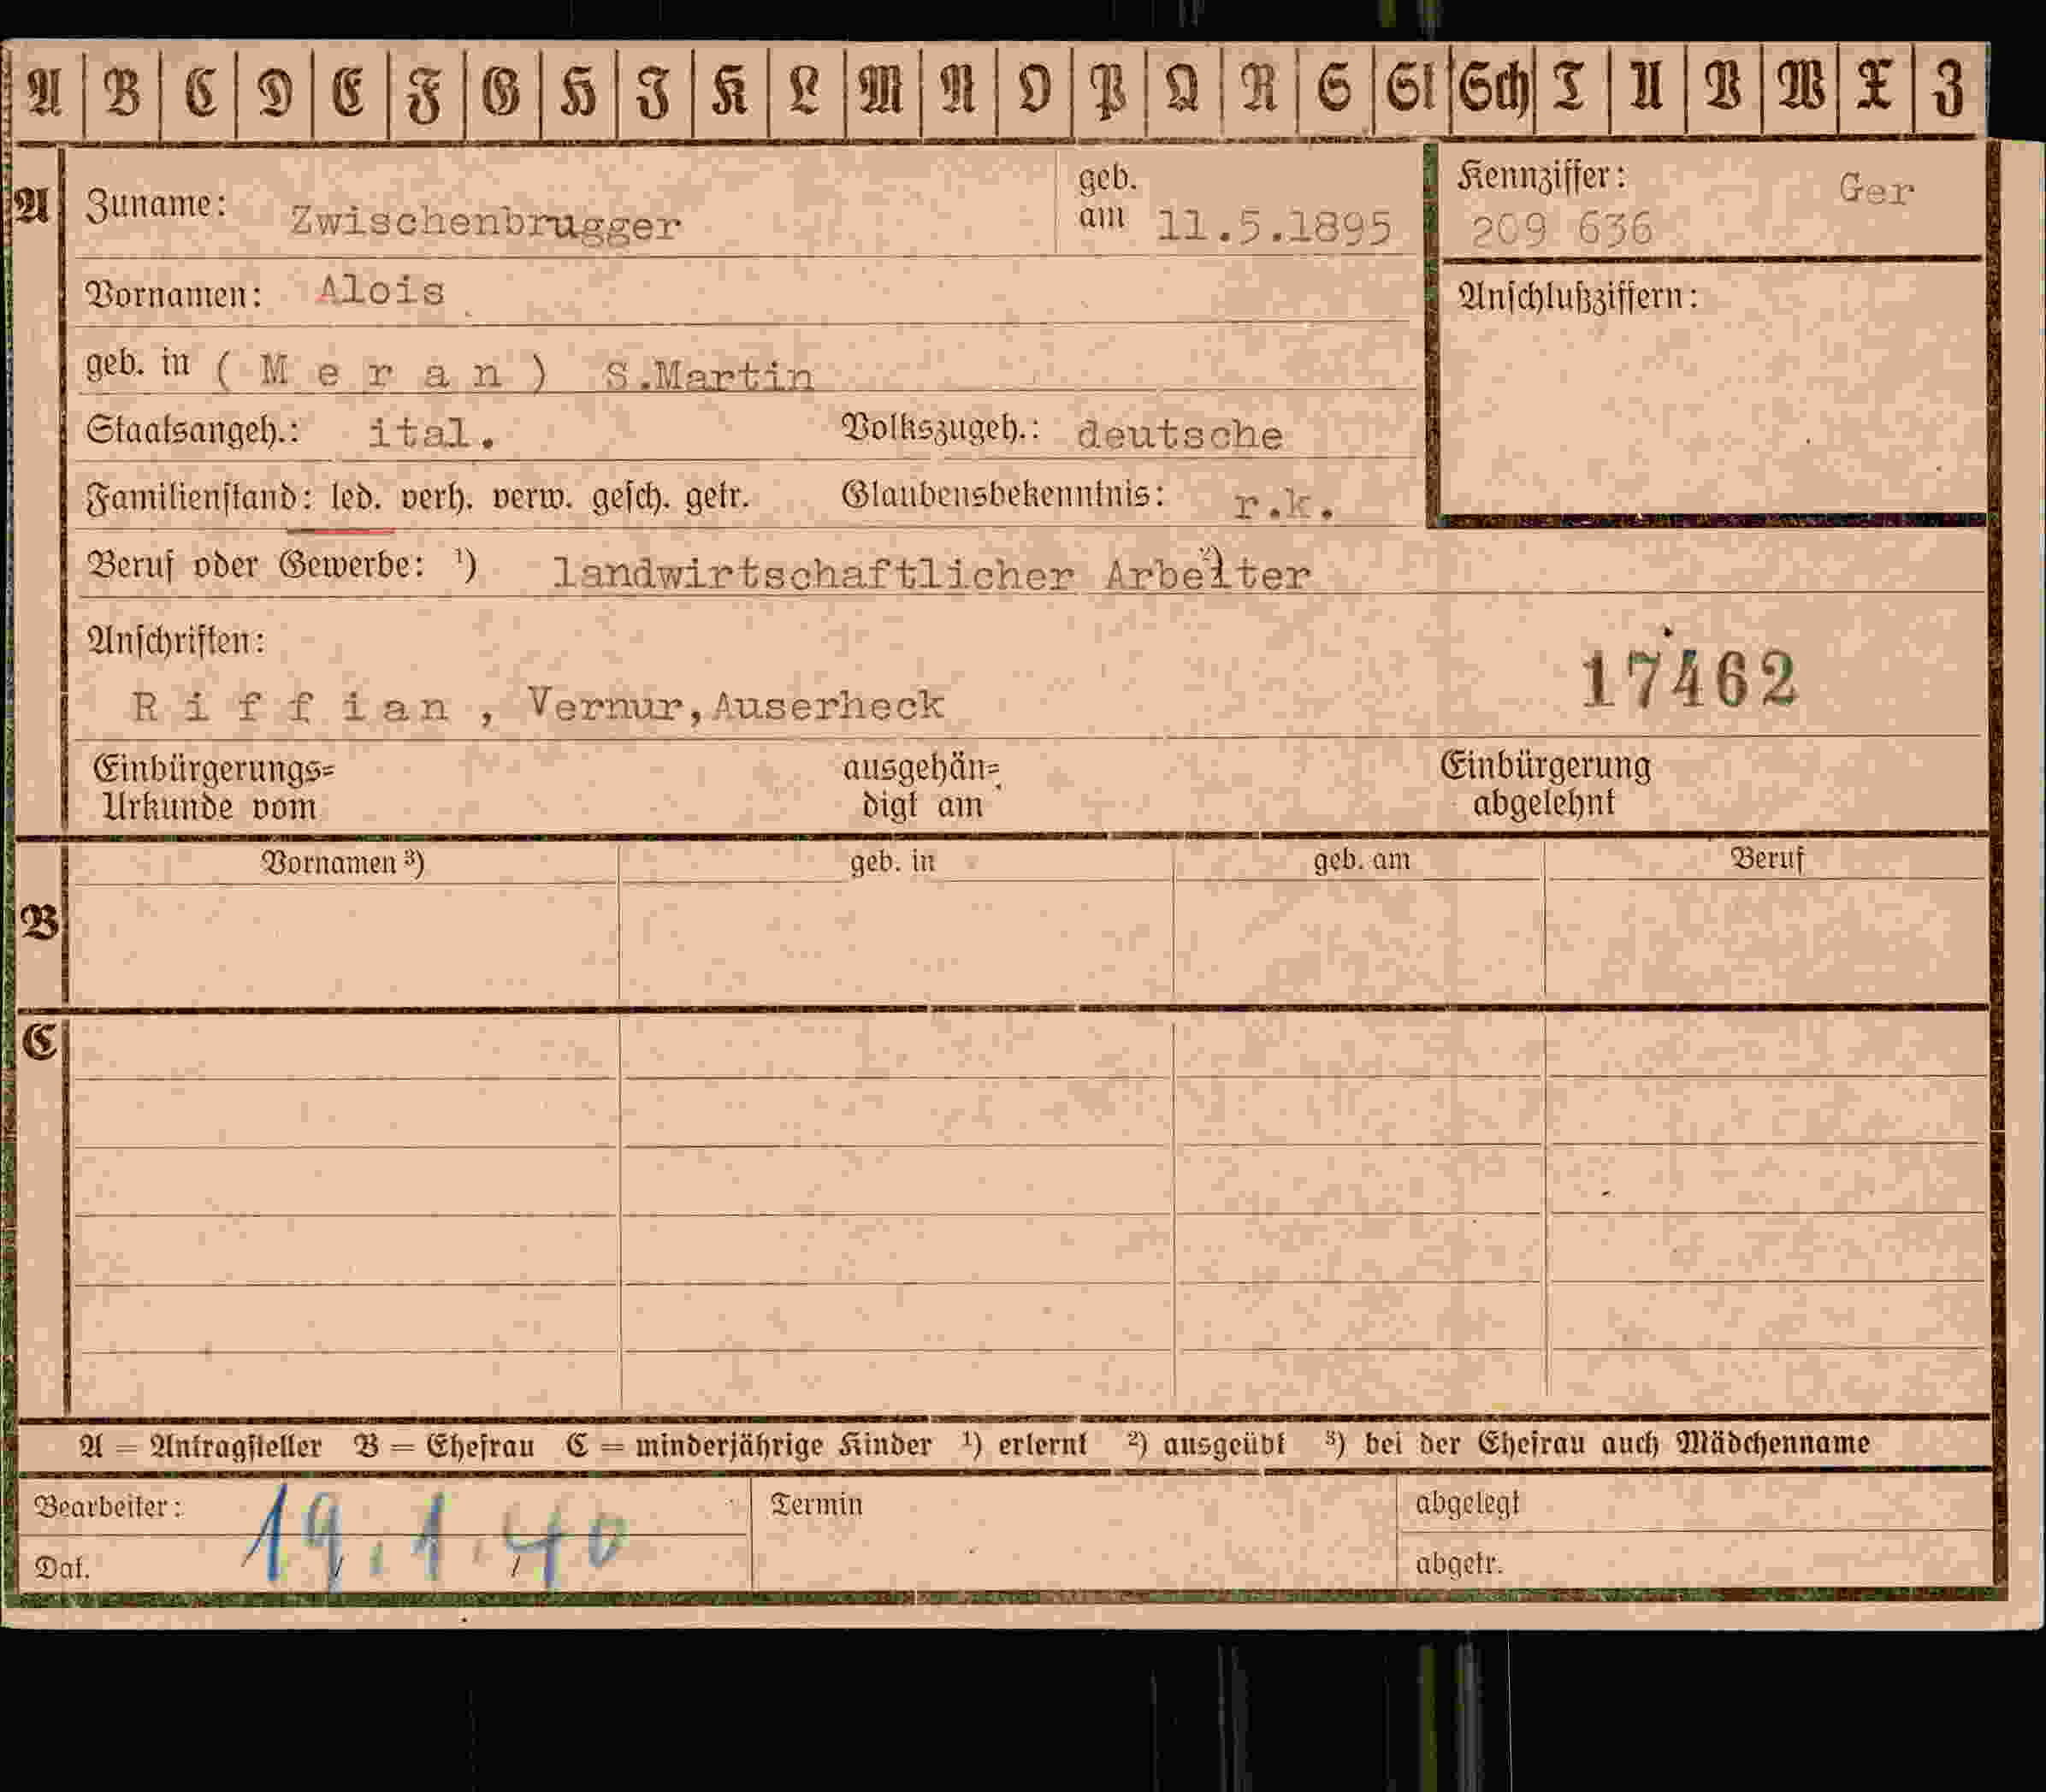 A B C D E F G H J K L M N O P Q R S St Sch T U V W X Z
A Zuname: Zwischenbrugger geb. am 11.5.1895 Kennziffer: Ger
209 636
Vornamen: Alois Anschlußziffern:
geb. in (Meran) S.Martin
Staatsangeh.: ital. Volkszugeh.: deutsche
Familienstand: led. verh. verw. gesch. getr. Glaubensbekenntnis: r.k.
Beruf oder Gewerbe: ¹) landwirtschaftlicher Arbeiter ²)
Anschriften:
17462
Riffian, Vernur,Auserheck
Einbürgerungs= ausgehän= Einbürgerung
Urkunde vom digt am abgelehnt
Vornamen ³) geb. in geb. am Beruf
B
C
A = Antragsteller B = Ehefrau C = minderjährige Kinder ¹) erlernt ²) ausgeübt ³) bei der Ehefrau auch Mädchenname
Bearbeiter: Termin abgelegt
19.1.40
Dat. abgetr.